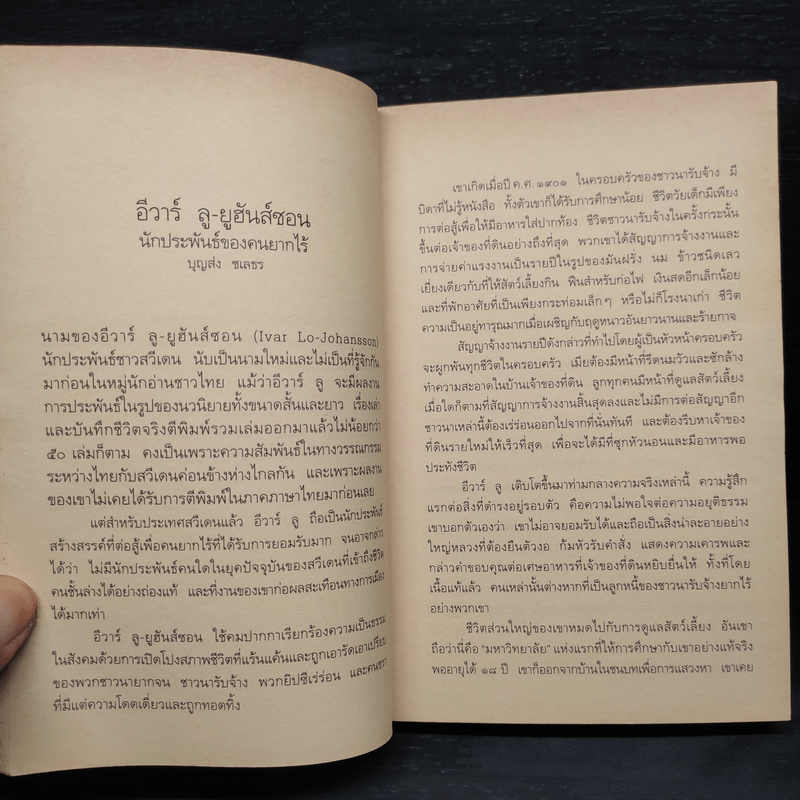 อีวาร์ ลู-ยูฮันส์ซอน
นักประพันธ์ของคนยากไร้
บุญส่ง ชเลธร
นามของอีวาร์ ลู-ยูฮันส์ซอน (Ivar Lo-Johansson)
นักประพันธ์ชาวสวีเดน นับเป็นนามใหม่และไม่เป็นที่รู้จักกัน
มาก่อนในหมู่นักอ่านชาวไทย แม้ว่าอีวาร์ ลู จะมีผลงาน
การประพันธ์ในรูปของนวนิยายทั้งขนาดสั้นและยาว เรื่องเล่า
และบันทึกชีวิตจริงตีพิมพ์รวมเล่มออกมาแล้วไม่น้อยกว่า
๕๐ เล่มก็ตาม คงเป็นเพราะความสัมพันธ์ในทางวรรณกรรม
ระหว่างไทยกับสวีเดนค่อนข้างห่างไกลกัน และเพราะผลงาน
ของเขาไม่เคยได้รับการตีพิมพ์ในภาคภาษาไทยมาก่อนเลย
แต่สำหรับประเทศสวีเดนแล้ว อีวาร์ ลู ถือเป็นนักประพันธ์
สร้างสรรค์ที่ต่อสู้เพื่อคนยากไร้ที่ได้รับการยอมรับมาก จนอาจกล่าว
ได้ว่า ไม่มีนักประพันธ์คนใดในยุคปัจจุบันของสวีเดนที่เข้าถึงชีวิต
คนชั้นล่างได้อย่างถ่องแท้ และที่งานของเขาก่อผลสะเทือนทางการเมือง
ได้มากเท่า
อีวาร์ ลู-ยูฮันส์ซอน ใช้คมปากกาเรียกร้องความเป็นธรรม
ในสังคมด้วยการเปิดโปงสภาพชีวิตที่แร้นแค้นและถูกเอารัดเอาเปรียบ
ของพวกชาวนายากจน ชาวนารับจ้าง พวกยิปซีเร่ร่อน และคนชรา
ที่มีแต่ความโดดเดี่ยวและถูกทอดทิ้ง
เขาเกิดเมื่อปี ค.ศ. ๑๙๐๑ ในครอบครัวของชาวนารับจ้าง มี
บิดาที่ไม่รู้หนังสือ ทั้งตัวเขาก็ได้รับการศึกษาน้อย ชีวิตวัยเด็กมีเพียง
การต่อสู้เพื่อให้มีอาหารใส่ปากท้อง ชีวิตชาวนารับจ้างในครั้งกระนั้น
ขึ้นต่อเจ้าของที่ดินอย่างถึงที่สุด พวกเขาได้สัญญาการจ้างงานและ
การจ่ายค่าแรงงานเป็นรายปีในรูปของมันฝรั่ง นม ข้าวชนิดเลว
เยี่ยงเดียวกับที่ให้สัตว์เลี้ยงกิน ฟืนสำหรับก่อไฟ เงินสดอีกเล็กน้อย
และที่พักอาศัยที่เป็นเพียงกระท่อมเล็กๆ หรือไม่ก็โรงนาเก่า ชีวิต
ความเป็นอยู่ทารุณมากเมื่อเผชิญกับฤดูหนาวอันยาวนานและร้ายกาจ
สัญญาจ้างงานรายปีดังกล่าวที่ทำไปโดยผู้เป็นหัวหน้าครอบครัว
จะผูกพันทุกชีวิตในครอบครัว เมียต้องมีหน้าที่รีดนมวัวและซักล้าง
ทำความสะอาดในบ้านเจ้าของที่ดิน ลูกทุกคนมีหน้าที่ดูแลสัตว์เลี้ยง
เมื่อใดก็ตามที่สัญญาการจ้างงานสิ้นสุดลงและไม่มีการต่อสัญญาอีก
ชาวนาเหล่านี้ต้องเร่ร่อนออกไปจากที่นั่นทันที และต้องรีบหาเจ้าของ
ที่ดินรายใหม่ให้เร็วที่สุด เพื่อจะได้มีที่ซุกหัวนอนและมีอาหารพอ
ประทังชีวิต
อีวาร์ ลู เติบโตขึ้นมาท่ามกลางความจริงเหล่านี้ ความรู้สึก
แรกต่อสิ่งที่ดำรงอยู่รอบตัว คือความไม่พอใจต่อความอยุติธรรม
เขาบอกตัวเองว่า เขาไม่อาจยอมรับได้และถือเป็นสิ่งน่าละอายอย่าง
ใหญ่หลวงที่ต้องยืนตัวงอ ก้มหัวรับคำสั่ง แสดงความเคารพและ
กล่าวคำขอบคุณต่อเศษอาหารที่เจ้าของที่ดินหยิบยื่นให้ ทั้งที่โดย
เนื้อแท้แล้ว คนเหล่านั้นต่างหากที่เป็นลูกหนี้ของชาวนารับจ้างยากไร้
อย่างพวกเขา
ชีวิตส่วนใหญ่ของเขาหมดไปกับการดูแลสัตว์เลี้ยง อันเขา
ถือว่านี่คือ "มหาวิทยาลัย" แห่งแรกที่ให้การศึกษากับเขาอย่างแท้จริง
พออายุได้ ๑๘ ปี เขาก็ออกจากบ้านในชนบทเพื่อการแสวงหา เขาเคย